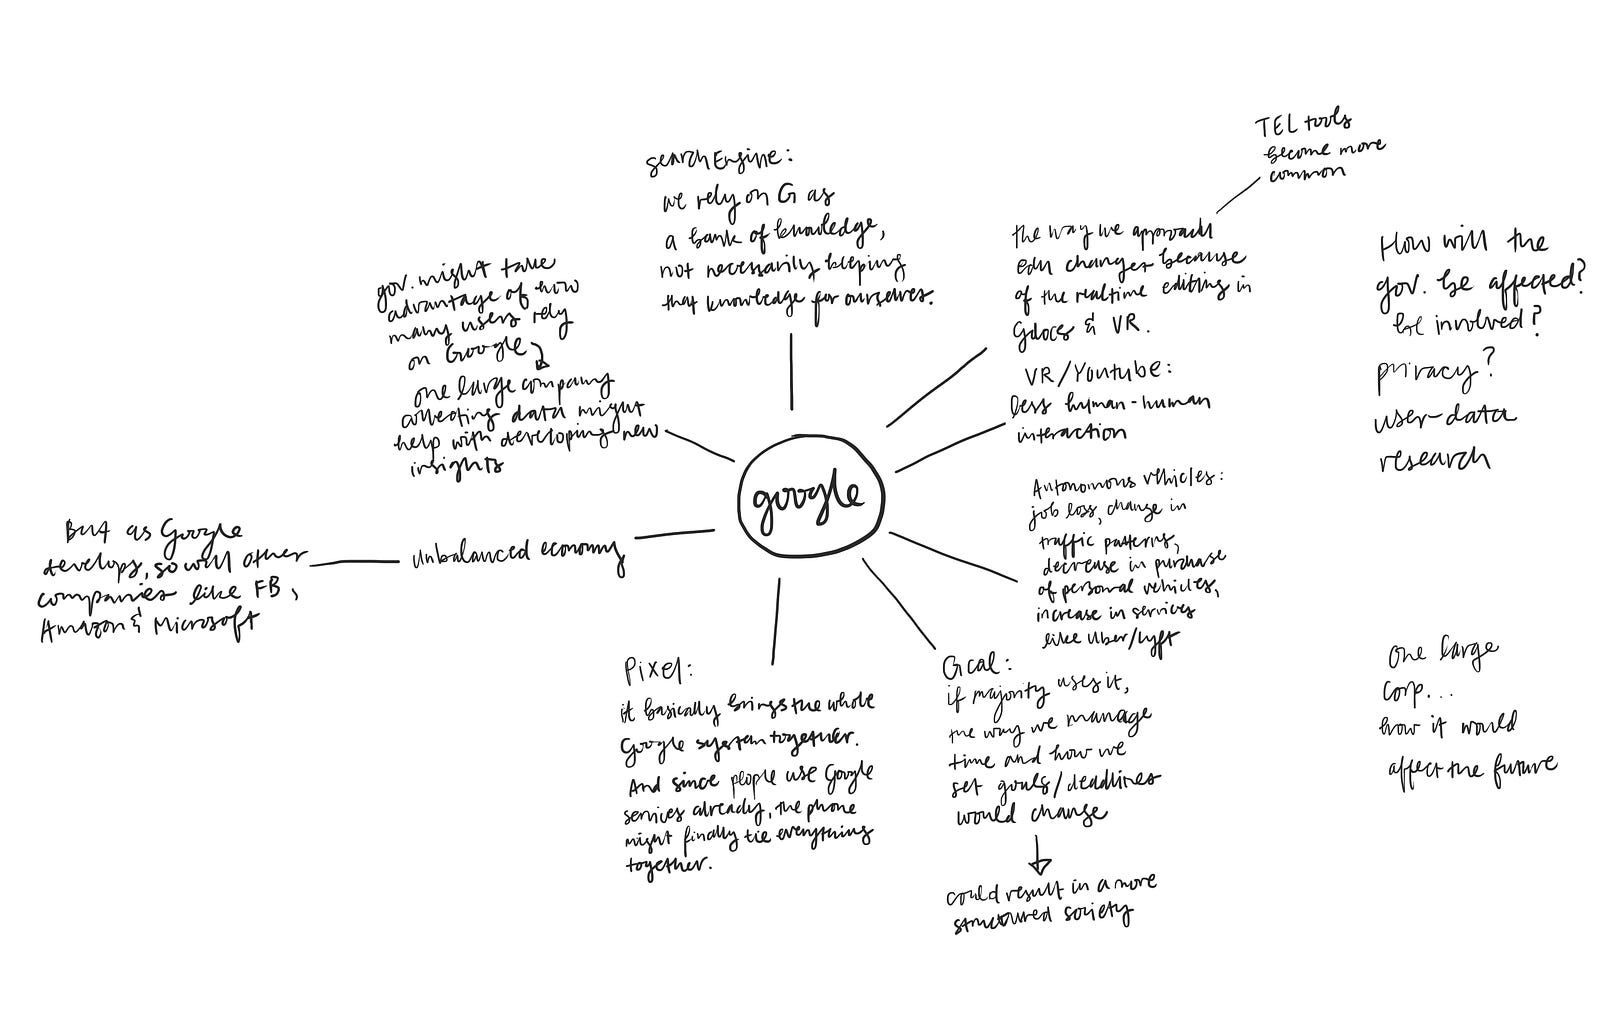 TEL tools
become more
common
search Engine:
we rely on G as
a bank of knowledge,
not necessarily keeping
that knowledge for ourselves.
the way we approach
edu changes because
of the realtime editing in
Gdocs & VR.
How will the
gov. be affected?
be involved?
privacy?
user-data
research
gov. might take
advantage of how
many users rely
on Google
one large company
collecting data might
help with developing new
insights
VR/Youtube:
less human-human
interaction
google
Autonomous vehicles:
job loss, change in
traffic patterns,
decrease in purchase
of personal vehicles,
increase in services
like Uber/Lyft
But as Google
develops, so will other
companies like FB,
Amazon & Microsoft
unbalanced economy
Pixel:
it basically brings the whole
Google system together.
And since people use Google
services already, the phone
might finally tie everything
together.
Gcal:
if majority uses it,
the way we manage
time and how we
set goals/deadlines
would change
could result in a more
structured society
one large
corp...
how it would
affect the future